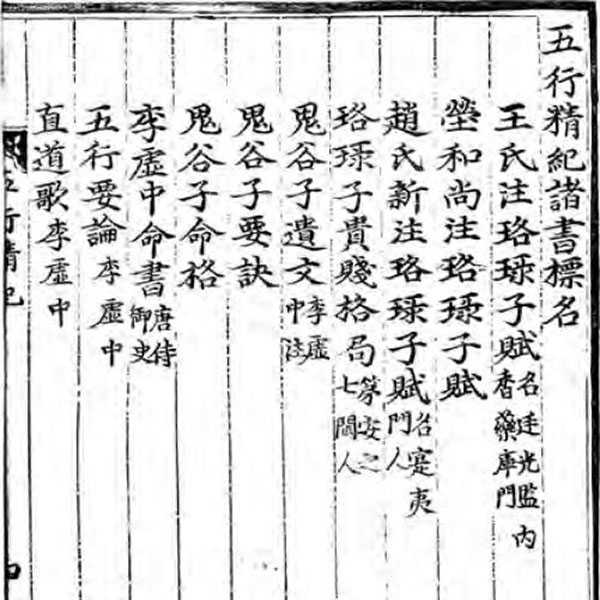 五行精紀諸書標名
王氏注珞琭子賦名廷光監內香藥庫門
瑩和尚注珞琭子賦
趙氏新注珞琭子賦名寔夷門人
珞琭子貴賤格局蓼安之七閩人
鬼谷子遺文李虛中注
鬼谷子要訣
鬼谷子命格
李虛中命書唐侍御史
五行要論李虛中
直道歌李虛中
五行精紀